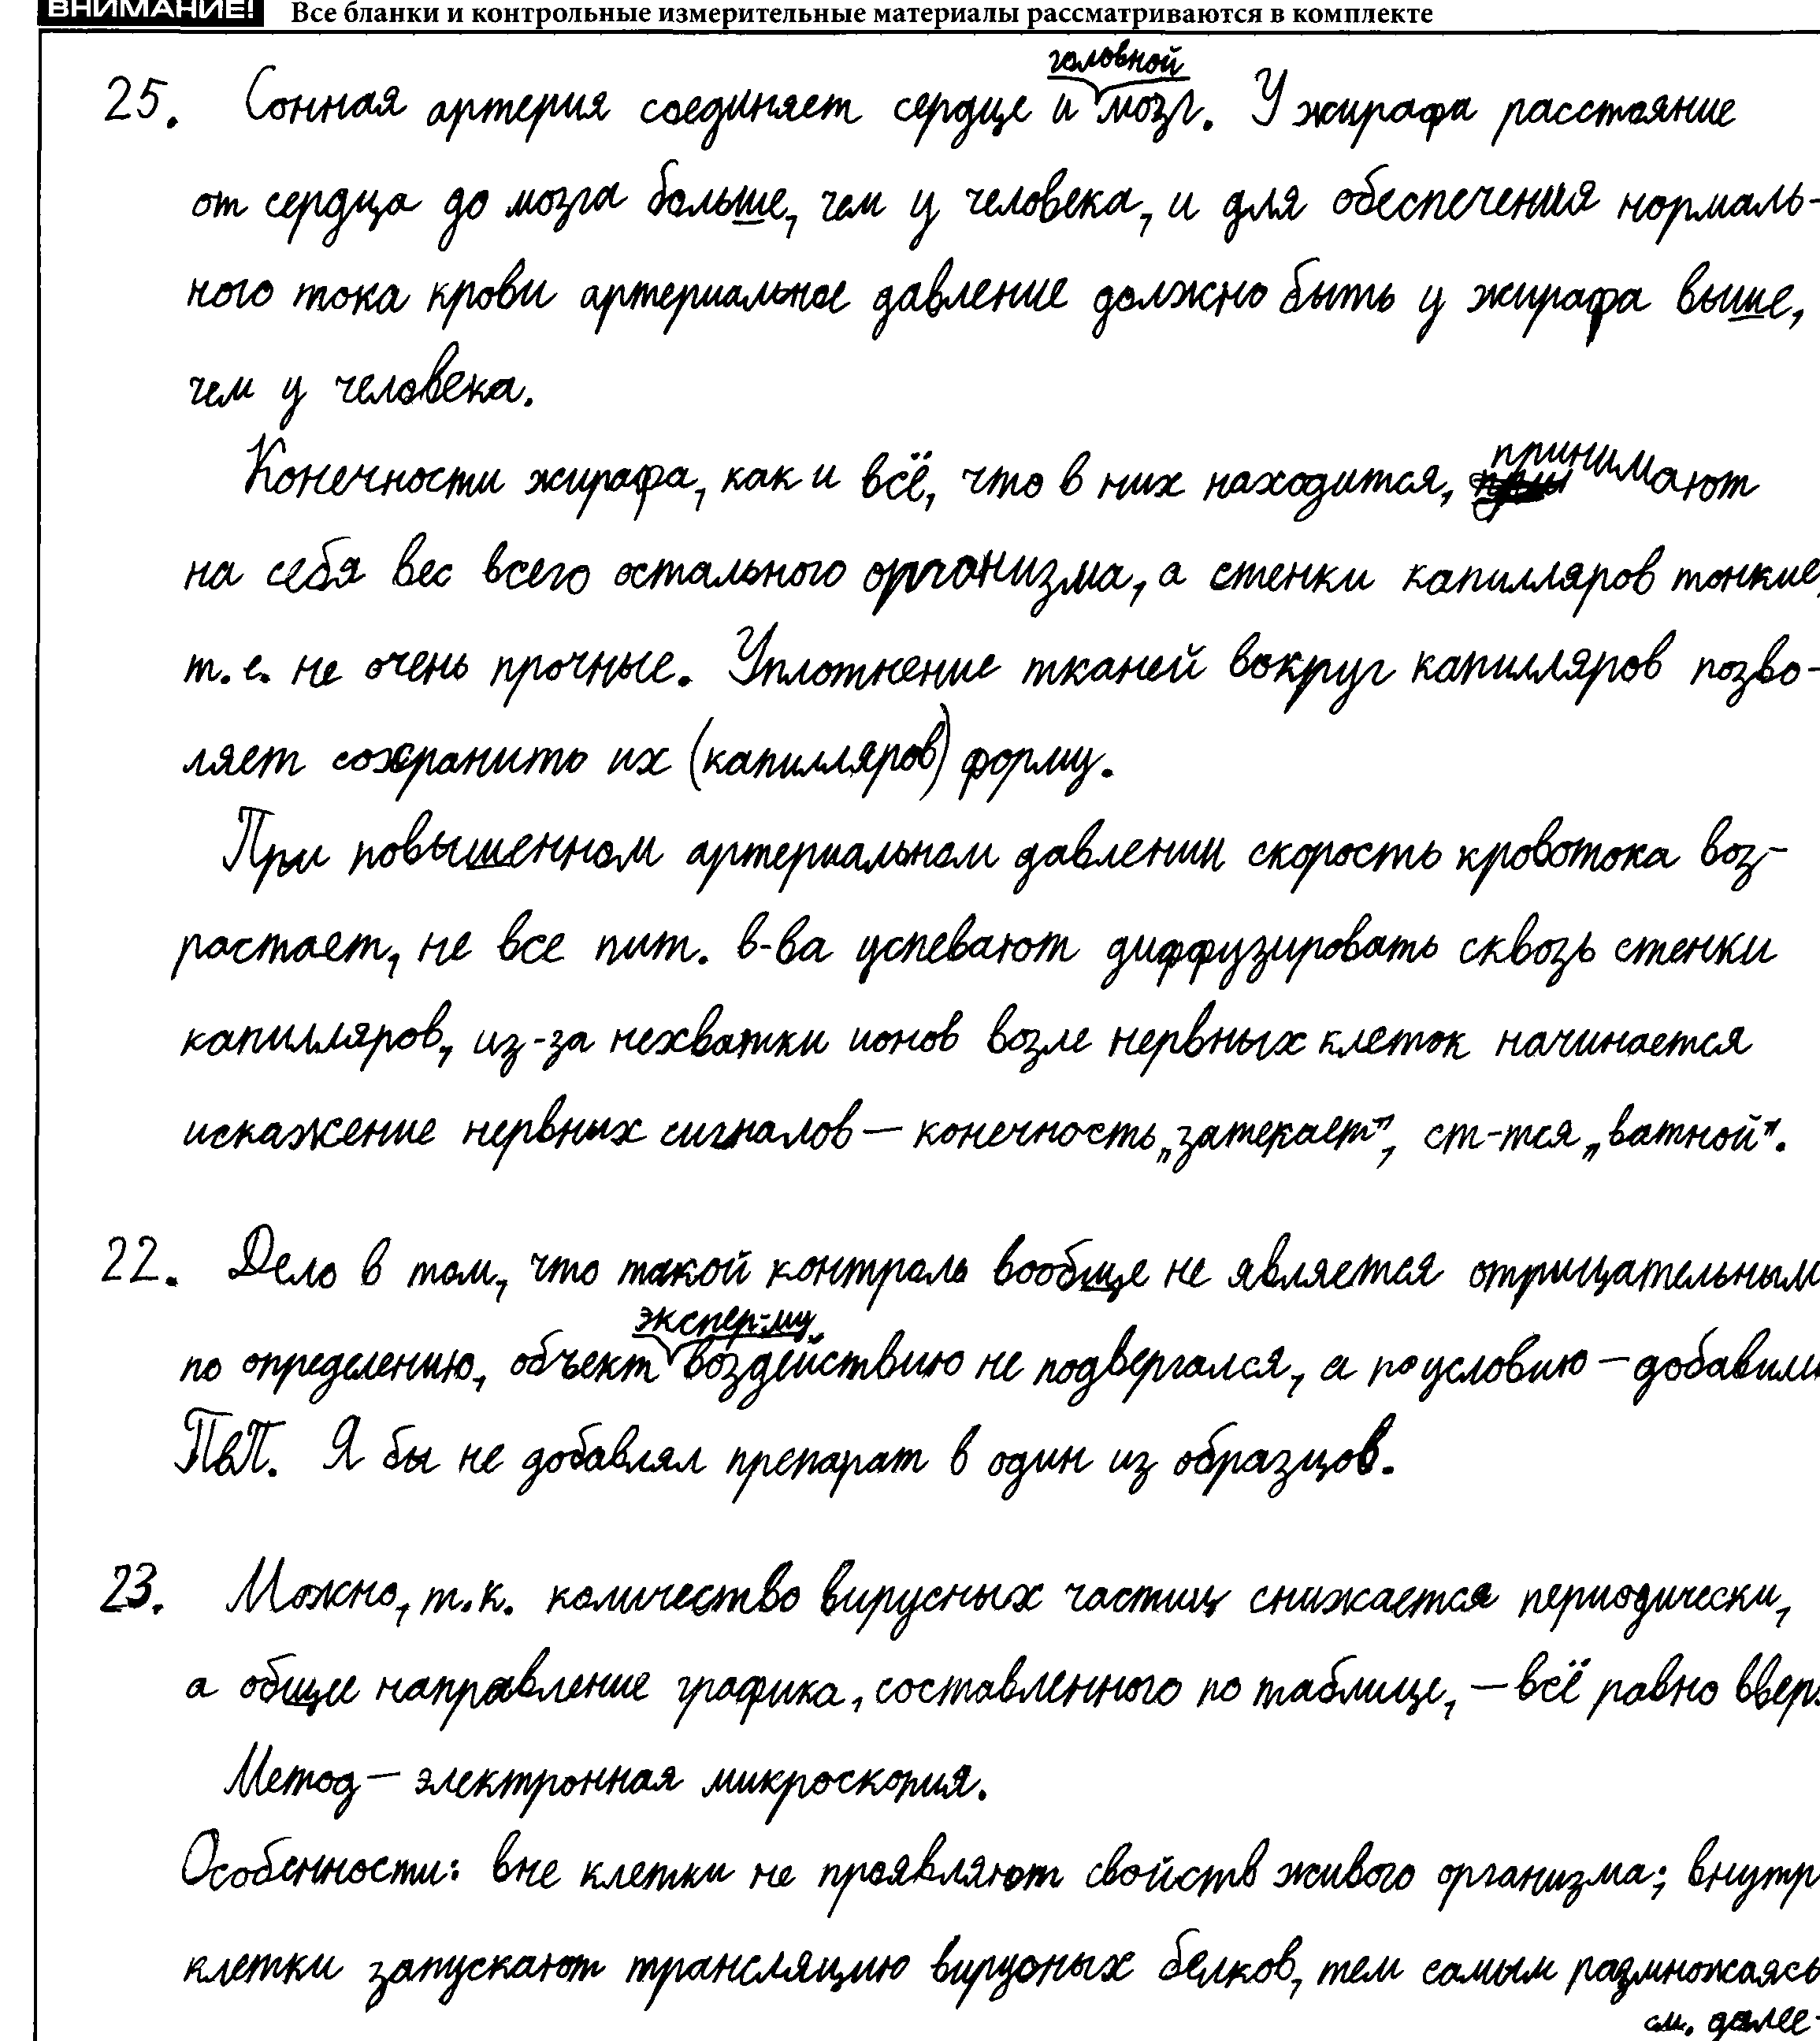 ВНИМАНИЕ! Все бланки и контрольные измерительные материалы рассматриваются в комплекте
головной
25. Сонная артерия соединяет сердце и мозг. У жирафа расстояние
от сердца до мозга больше, чем у человека, и для обеспечения нормаль-
ного тока крови артериальное давление должно быть у жирафа выше,
чем у человека.
Конечности жирафа, как и всё, что в них находится, принимают
на себя вес всего остального организма, а стенки капилляров тонкие,
т.е. не очень прочные. Уплотнение тканей вокруг капилляров позво-
ляет сохранить их (капилляров) форму.
При повышенном артериальном давлении скорость кровотока воз-
растает, не все пит. в-ва успевают диффузировать сквозь стенки
капилляров, из-за нехватки ионов возле нервных клеток начинается
искажение нервных сигналов — конечность „затекает", ст-тся „ватной".
22. Дело в том, что такой контроль вообще не является отрицательным
экспер-му
по определению, объект воздействию не подвергался, а по условию — добавили
ПвП. Я бы не добавлял препарат в один из образцов.
23. Можно, т.к. количество вирусных частиц снижается периодически,
а общее направление графика, составленного по таблице, — всё равно вверх
Метод — электронная микроскопия.
Особенности: вне клетки не проявляют свойств живого организма; внутр
клетки запускают трансляцию вирусных белков, тем самым размножаясь
см. далее